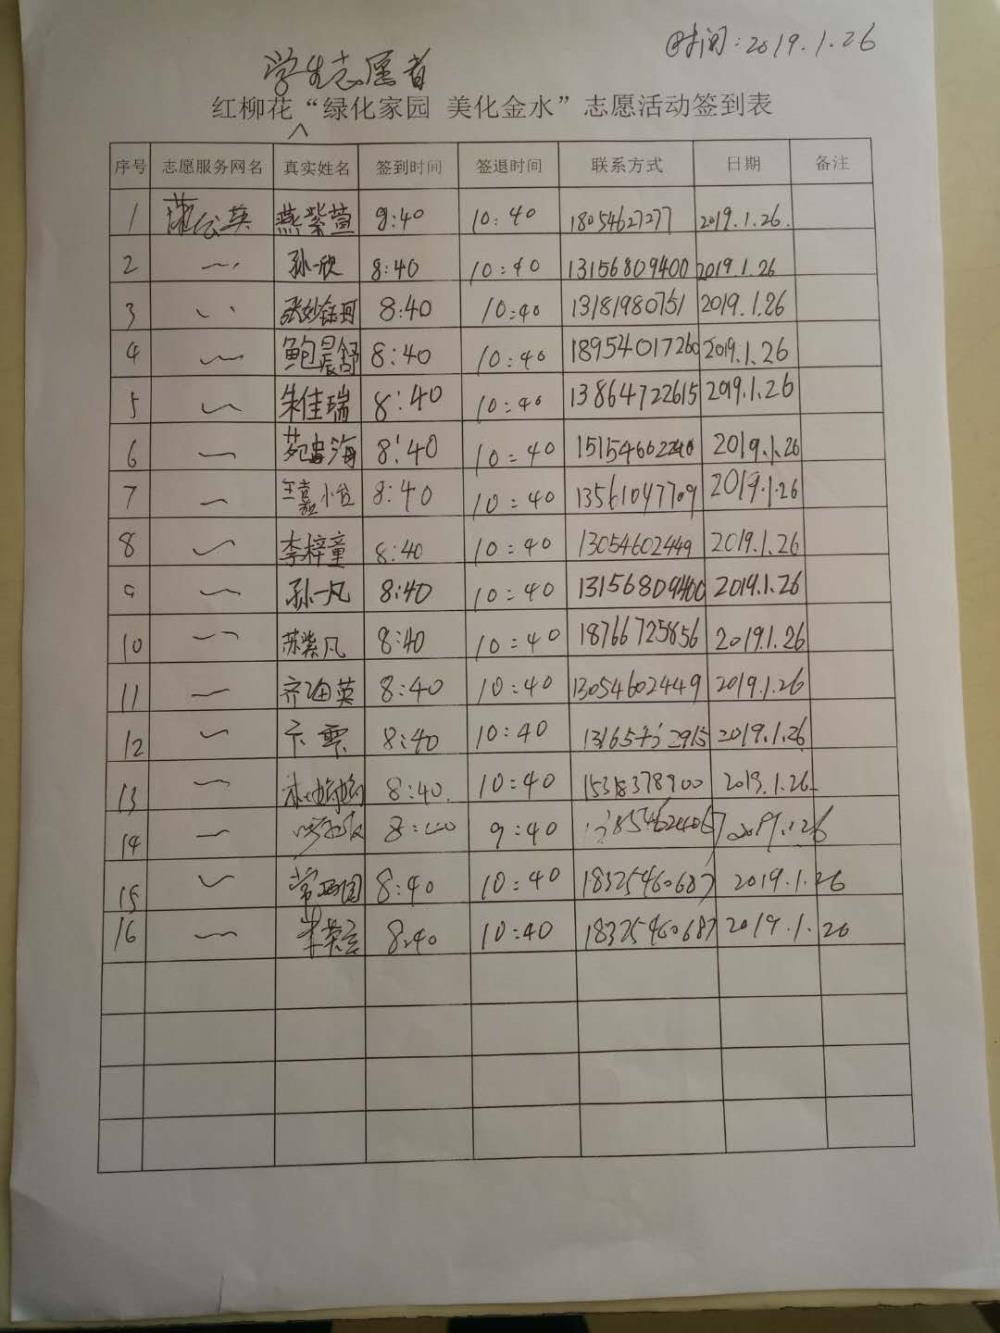 时间:2019.1.26
学生志愿者
红柳花“绿化家园 美化金水”志愿活动签到表
序号 志愿服务网名 真实姓名 签到时间 签退时间 联系方式 日期 备注
1 蒲公英 燕紫萱 8:40 10:40 18054627277 2019.1.26.
2 孙一欣 8:40 10:40 13156809400 2019.1.26
3 8:40 10:40 13181980751 2019.1.26
4 鲍晨舒 8:40 10:40 18954017260 2019.1.26
5 朱佳瑞 8:40 10:40 13864722615 2019.1.26
6 8:40 10:40 2019.1.26
7 8:40 10:40 13561047709 2019.1.26
8 李梓童 8:40 10:40 13054602449 2019.1.26
9 孙一凡 8:40 10:40 13156809400 2019.1.26
10 苏紫凡 8:40 10:40 18766725856 2019.1.26
11 8:40 10:40 13054602449 2019.1.26
12 8:40 10:40 2019.1.26
13 8:40. 10:40 15318378900 2019.1.26
14 9:40
15 8:40 10:40 18325460687 2019.1.26
16 8:40 10:40 18325460687 2019.1.26